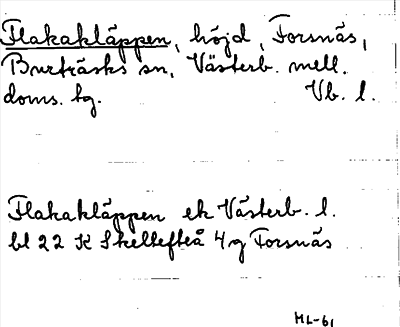 Flakakläppen, höjd, Forsnäs,
Burträsks sn, Västerb. mell.
doms. tg. Vb. l.
Flakakläppen ek Västerb. l.
bl 22 K Skellefteå 4g Forsnäs
ML-61